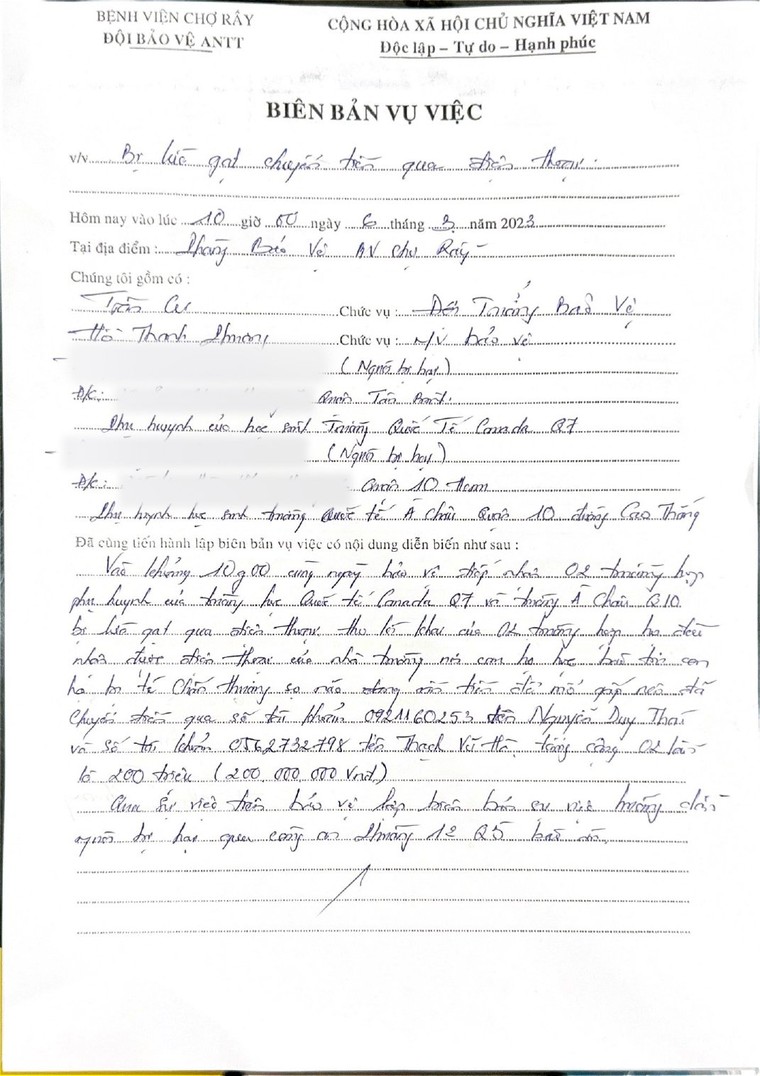 BỆNH VIỆN CHỢ RẪY
ĐỘI BẢO VỆ ANTT
CỘNG HÒA XÃ HỘI CHỦ NGHĨA VIỆT NAM
Độc lập – Tự do – Hạnh phúc
BIÊN BẢN VỤ VIỆC
v/v Bị lừa gạt chuyển tiền qua điện thoại.
Hôm nay vào lúc 10 giờ 00 ngày 6 tháng 3 năm 2023
Tại địa điểm : Phòng Bảo Vệ BV Chợ Rẫy
Chúng tôi gồm có :
Trần Cư Chức vụ : Đội Trưởng Bảo Vệ
Hồ Thanh Phương Chức vụ : N/V bảo vệ
(Người bị hại)
Đ/c: Quận Tân
Phụ huynh của học sinh Trường Quốc Tế Canada Q7
(Người bị hại)
Đ/c: Quận 10
Phụ huynh học sinh trường Quốc tế Á Châu Quận 10 đường Cao Thắng
Đã cùng tiến hành lập biên bản vụ việc có nội dung diễn biến như sau :
Vào khoảng 10g00 cùng ngày bảo vệ tiếp nhận 02 trường hợp
phụ huynh của trường học Quốc tế Canada Q7 và trường Á Châu Q10.
bị lừa gạt qua điện thoại theo lời khai của 02 trường hợp họ đều
nhận được điện thoại của nhà trường nói con họ học con
họ bị té chấn thương sọ não đang cần tiền để mổ gấp nên đã
chuyển tiền qua số tài khoản 0921160253 tên Nguyễn Duy Thái
và số tài khoản 0562732798 tên Thạch Vũ Hà tổng cộng 02 lần
là 200 triệu (200.000.000 Vnđ.)
Qua sự việc trên bảo vệ lập biên bản sự việc hướng dẫn
người bị hại qua công an Phường 12 Q5 báo án.